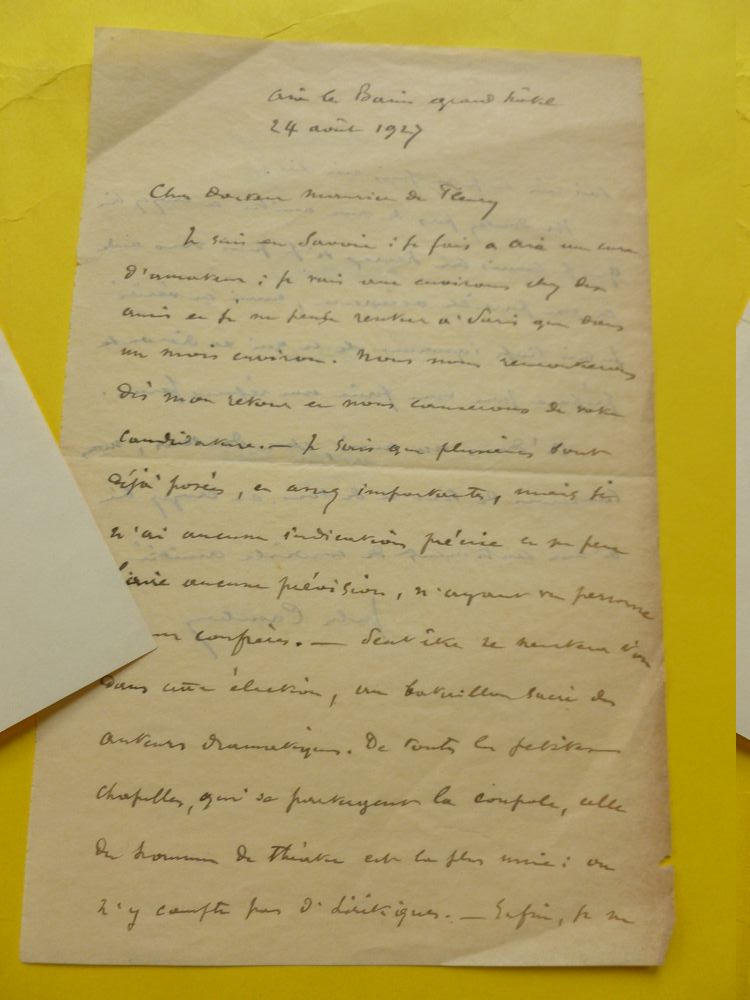 Aix les Bains grand hôtel
24 août 1927
Cher Docteur Maurice de Fleury
Je suis en Savoie ; je fais à Aix une cure
d'amateur ; je vais aux environs chez des
amis et je ne pense rentrer à Paris que dans
un mois environ. Nous nous rencontrerons
dès mon retour et nous causerons de votre
candidature. — Je sais que plusieurs sont
déjà posées, et assez importantes, mais je
n'ai aucune indication précise et ne peux
faire aucune prévision, n'ayant vu personne
confrères. — Peut être se heurtera t'on
dans cette élection, au bataillon sacré des
auteurs dramatiques. De toutes les petites
chapelles, qui se partagent la coupole, celle
des hommes de théâtre est la plus unie : on
n'y compte pas d'hérétiques. — Enfin, je ne